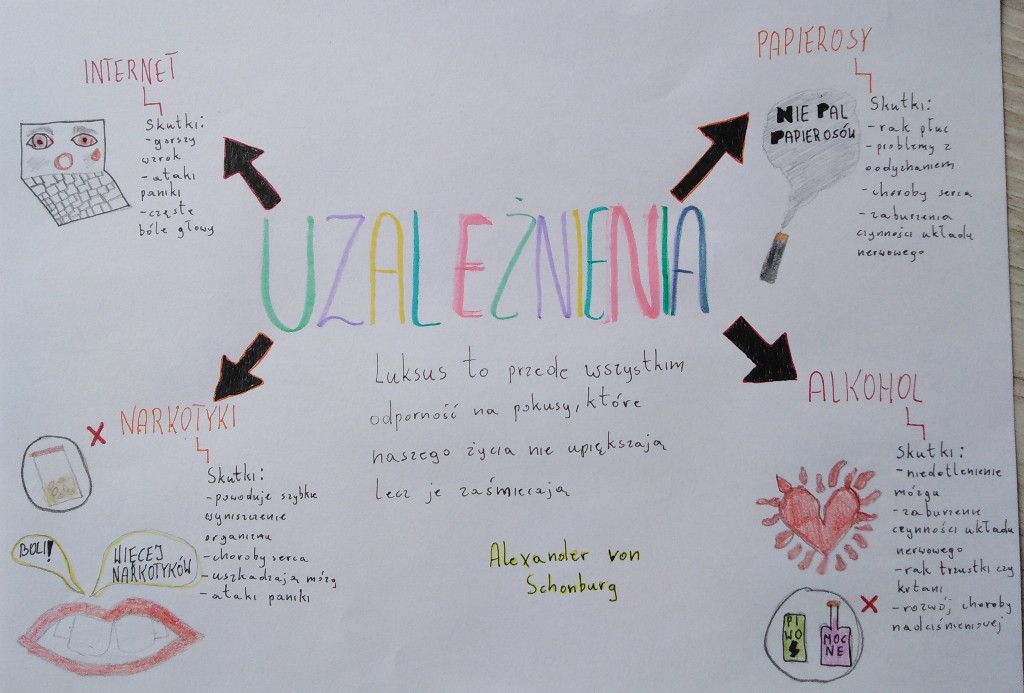 INTERNET
Skutki:
-gorszy
wzrok
-ataki
paniki
-częste
bóle głowy
PAPIEROSY
NIE PAL
PAPIEROSÓW
Skutki:
-rak płuc
-problemy z
oddychaniem
-choroby serca
-zaburzenia
czynności układu
nerwowego
UZALEŻNIENIA
Luksus to przede wszystkim
odporność na pokusy, które
naszego życia nie upiększają
lecz je zaśmiecają
Alexander von
Schonburg
NARKOTYKI
Skutki:
-powoduje szybkie
wyniszczenie
organizmu
-choroby serca
-uszkadzają mózg
-ataki paniki
BOLI!
WIĘCEJ
NARKOTYKÓW
ALKOHOL
Skutki:
-niedotlenienie
mózgu
-zaburzenie
czynności układu
nerwowego
-rak trzustki czy
krtani
-rozwój choroby
nadciśnieniowej
PI
WO
MOC
NE